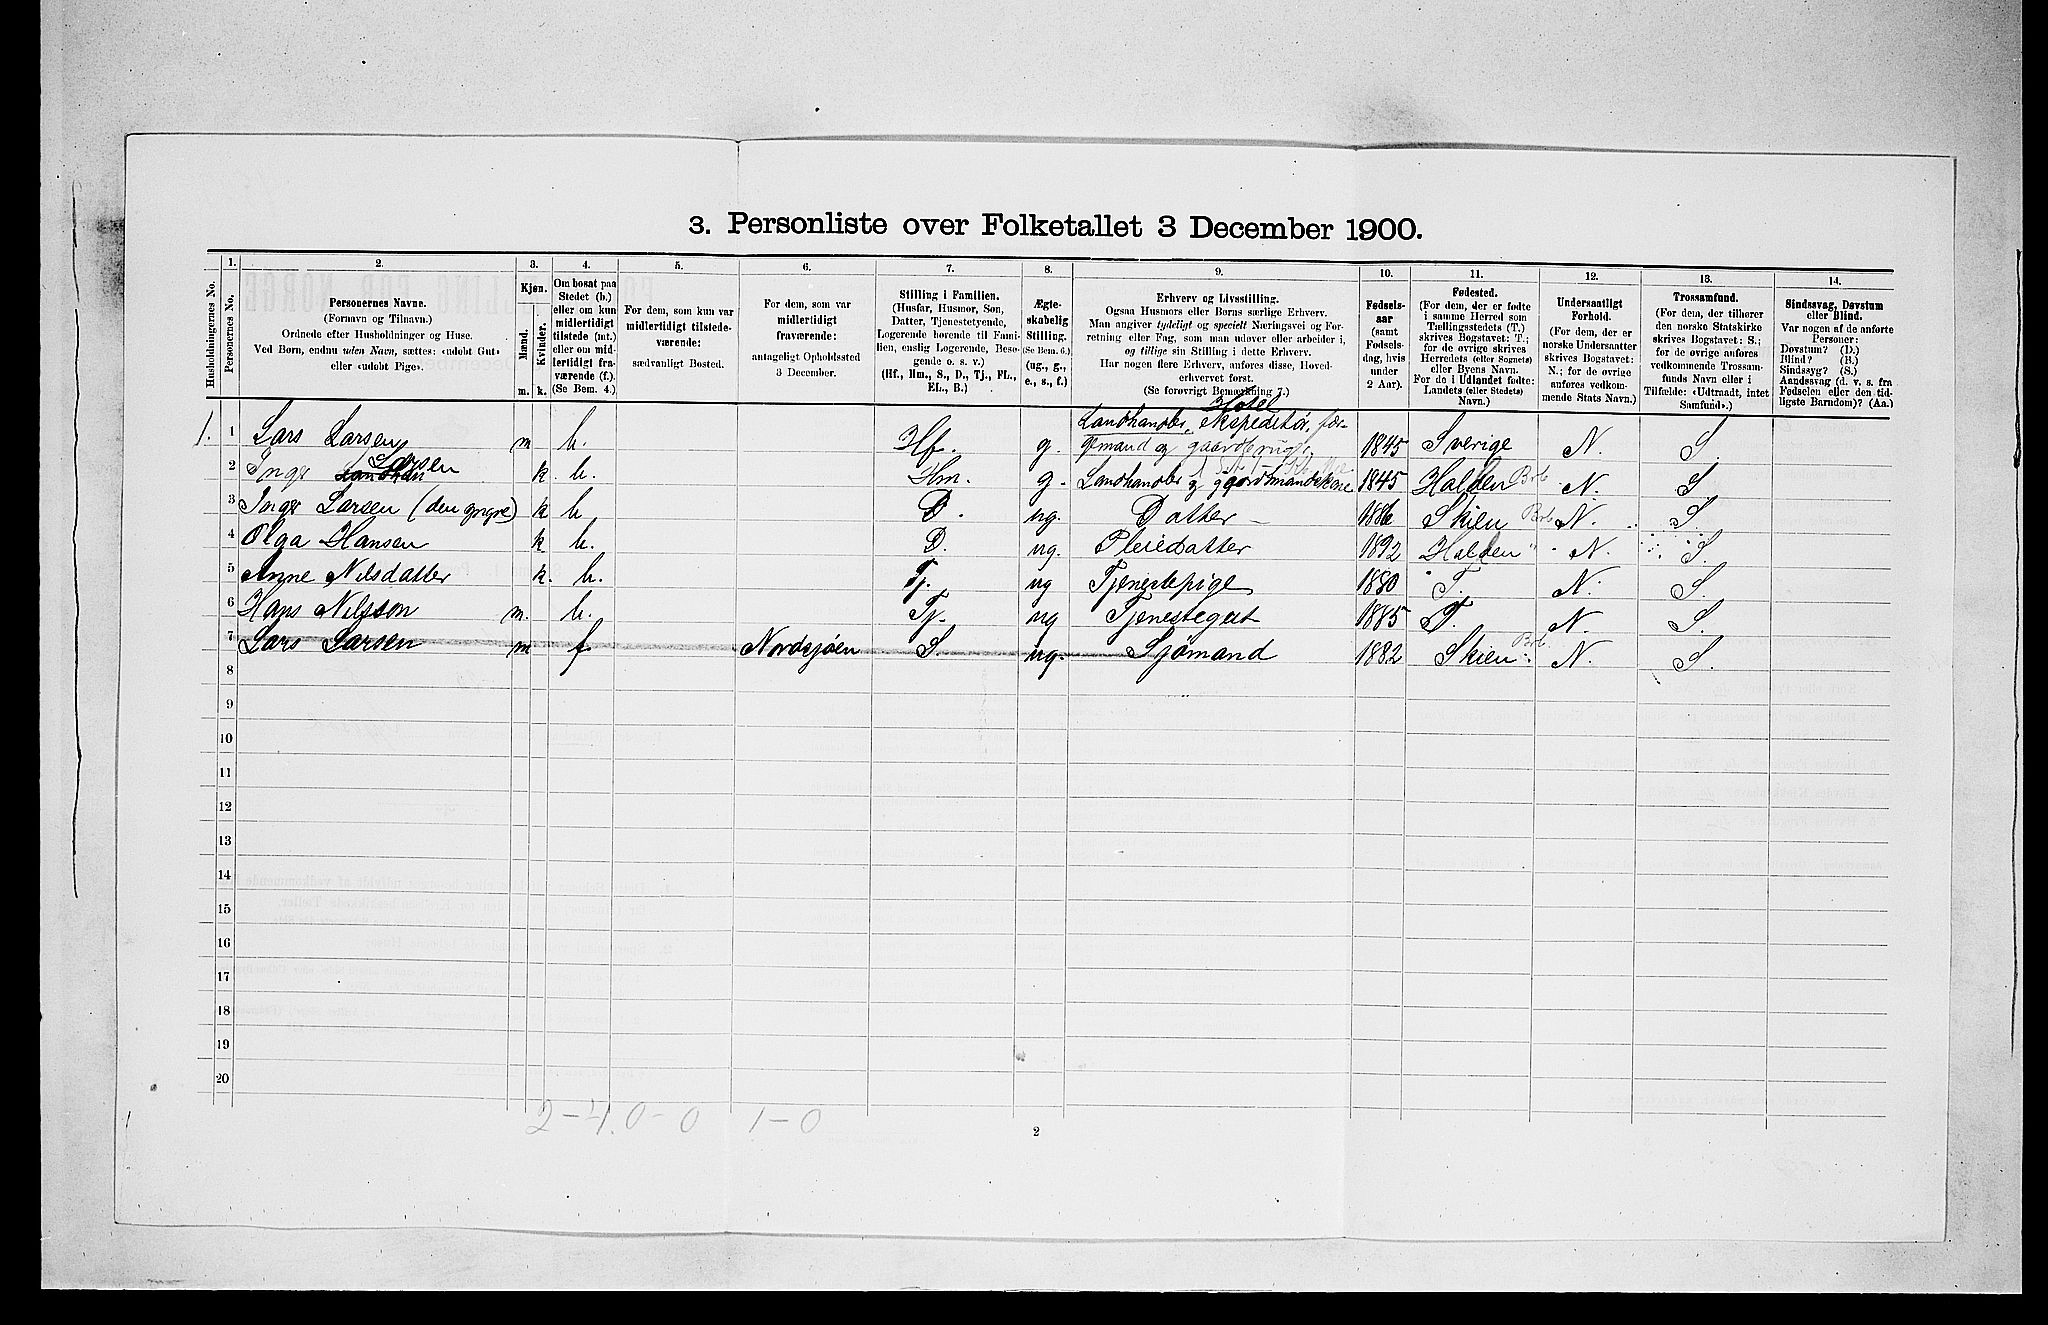 3. Personliste over Folketallet 3 December 1900.
1. 2. 3. 4. 5. 6. 7. 8. 9. 10. 11. 12. 13. 14.
Husholdningernes No.
Personernes No.
Personernes Navne.
(Fornavn og Tilnavn.)
Ordnede efter Husholdninger og Huse.
Ved Børn, endnu uden Navn, sættes: «udøbt Gut»
eller «udøbt Pige».
Kjøn.
Mænd.
Kvinder.
m. k.
Om bosat paa
Stedet (b.)
eller om kun
midlertidigt
tilstede (mt.)
eller om mid-
lertidigt fra-
værende (f.).
(Se Bem. 4.)
For dem, som kun var
midlertidigt tilstede-
værende:
sædvanligt Bosted.
For dem, som var
midlertidigt
fraværende:
antageligt Opholdssted
3 December.
Stilling i Familien.
(Husfar, Husmor, Søn,
Datter, Tjenestetyende,
Logerende hørende til Fami-
lien, enslig Logerende, Besø-
gende o. s. v.)
(Hf., Hm., S., D., Tj., FL.,
EL., B.)
Ægte-
skabelig
Stilling.
(Se Bem. 6.)
(ug., g.,
e., s., f.)
Erhverv og Livsstilling.
Ogsaa Husmors eller Børns særlige Erhverv.
Man angiver tydeligt og specielt Næringsvei og For-
retning eller Fag, som man udøver eller arbeider i,
og tillige sin Stilling i dette Erhverv.
Har nogen flere Erhverv, anføres disse, Hoved-
erhvervet først.
(Se forøvrigt Bemærkning 7.)
Fødsels-
aar
(samt
Fødsels-
dag, hvis
under
2 Aar).
Fødested.
(For dem, der er fødte
i samme Herred som
Tællingsstedets (T.)
skrives Bogstavet: T.;
for de øvrige skrives
Herredets (eller Sognets)
eller Byens Navn.
For de i Udlandet fødte:
Landets (eller Stedets)
Navn.)
Undersaatligt
Forhold.
(For dem, der er
norske Undersaatter
skrives Bogstavet:
N.; for de øvrige
anføres vedkom-
mende Stats Navn.)
Trossamfund.
(For dem, der tilhører
den norske Statskirke
skrives Bogstavet: S.;
for de øvrige anføres
vedkommende Trossam-
funds Navn eller i
Tilfælde: «Udtraadt, intet
Samfund».)
Sindssvag, Døvstum
eller Blind.
Var nogen af de anførte
Personer:
Døvstum? (D.)
Blind? (B.)
Sindssyg? (S.)
Aandssvag (d. v. s. fra
Fødselen eller den tid-
ligste Barndom)? (Aa.)
Hotel
Landhandler, ekspeditør, for-
1. 1 Lars Larsen m b. Hf. g. mand og gaardbruger 1845 Sverige N. S.
2 Inger Larsen k. b. Hm. g. Landhandler og gaardmandskone 1845 Halden Brb N. S.
3 Inger Larsen (den yngre) k b D. ug. Datter 1886 Skien Brb N. S.
4 Olga Hansen k b. D. ug. Pleiedatter 1892 Halden " N. S.
5 Anne Nilsdatter k. b. Tj. ug Tjenestepige 1880 T. N. S.
6 Hans Nilsson m. b. Tj. ug Tjenestegut 1885 T. N. S.
7 Lars Larsen m f Nordsjøen S. ug. Sjømand 1882 Skien Brb N. S.
8
9
10
11
12
13
14
15
16
17
18
19
20
2-4 0-0 1-0
2